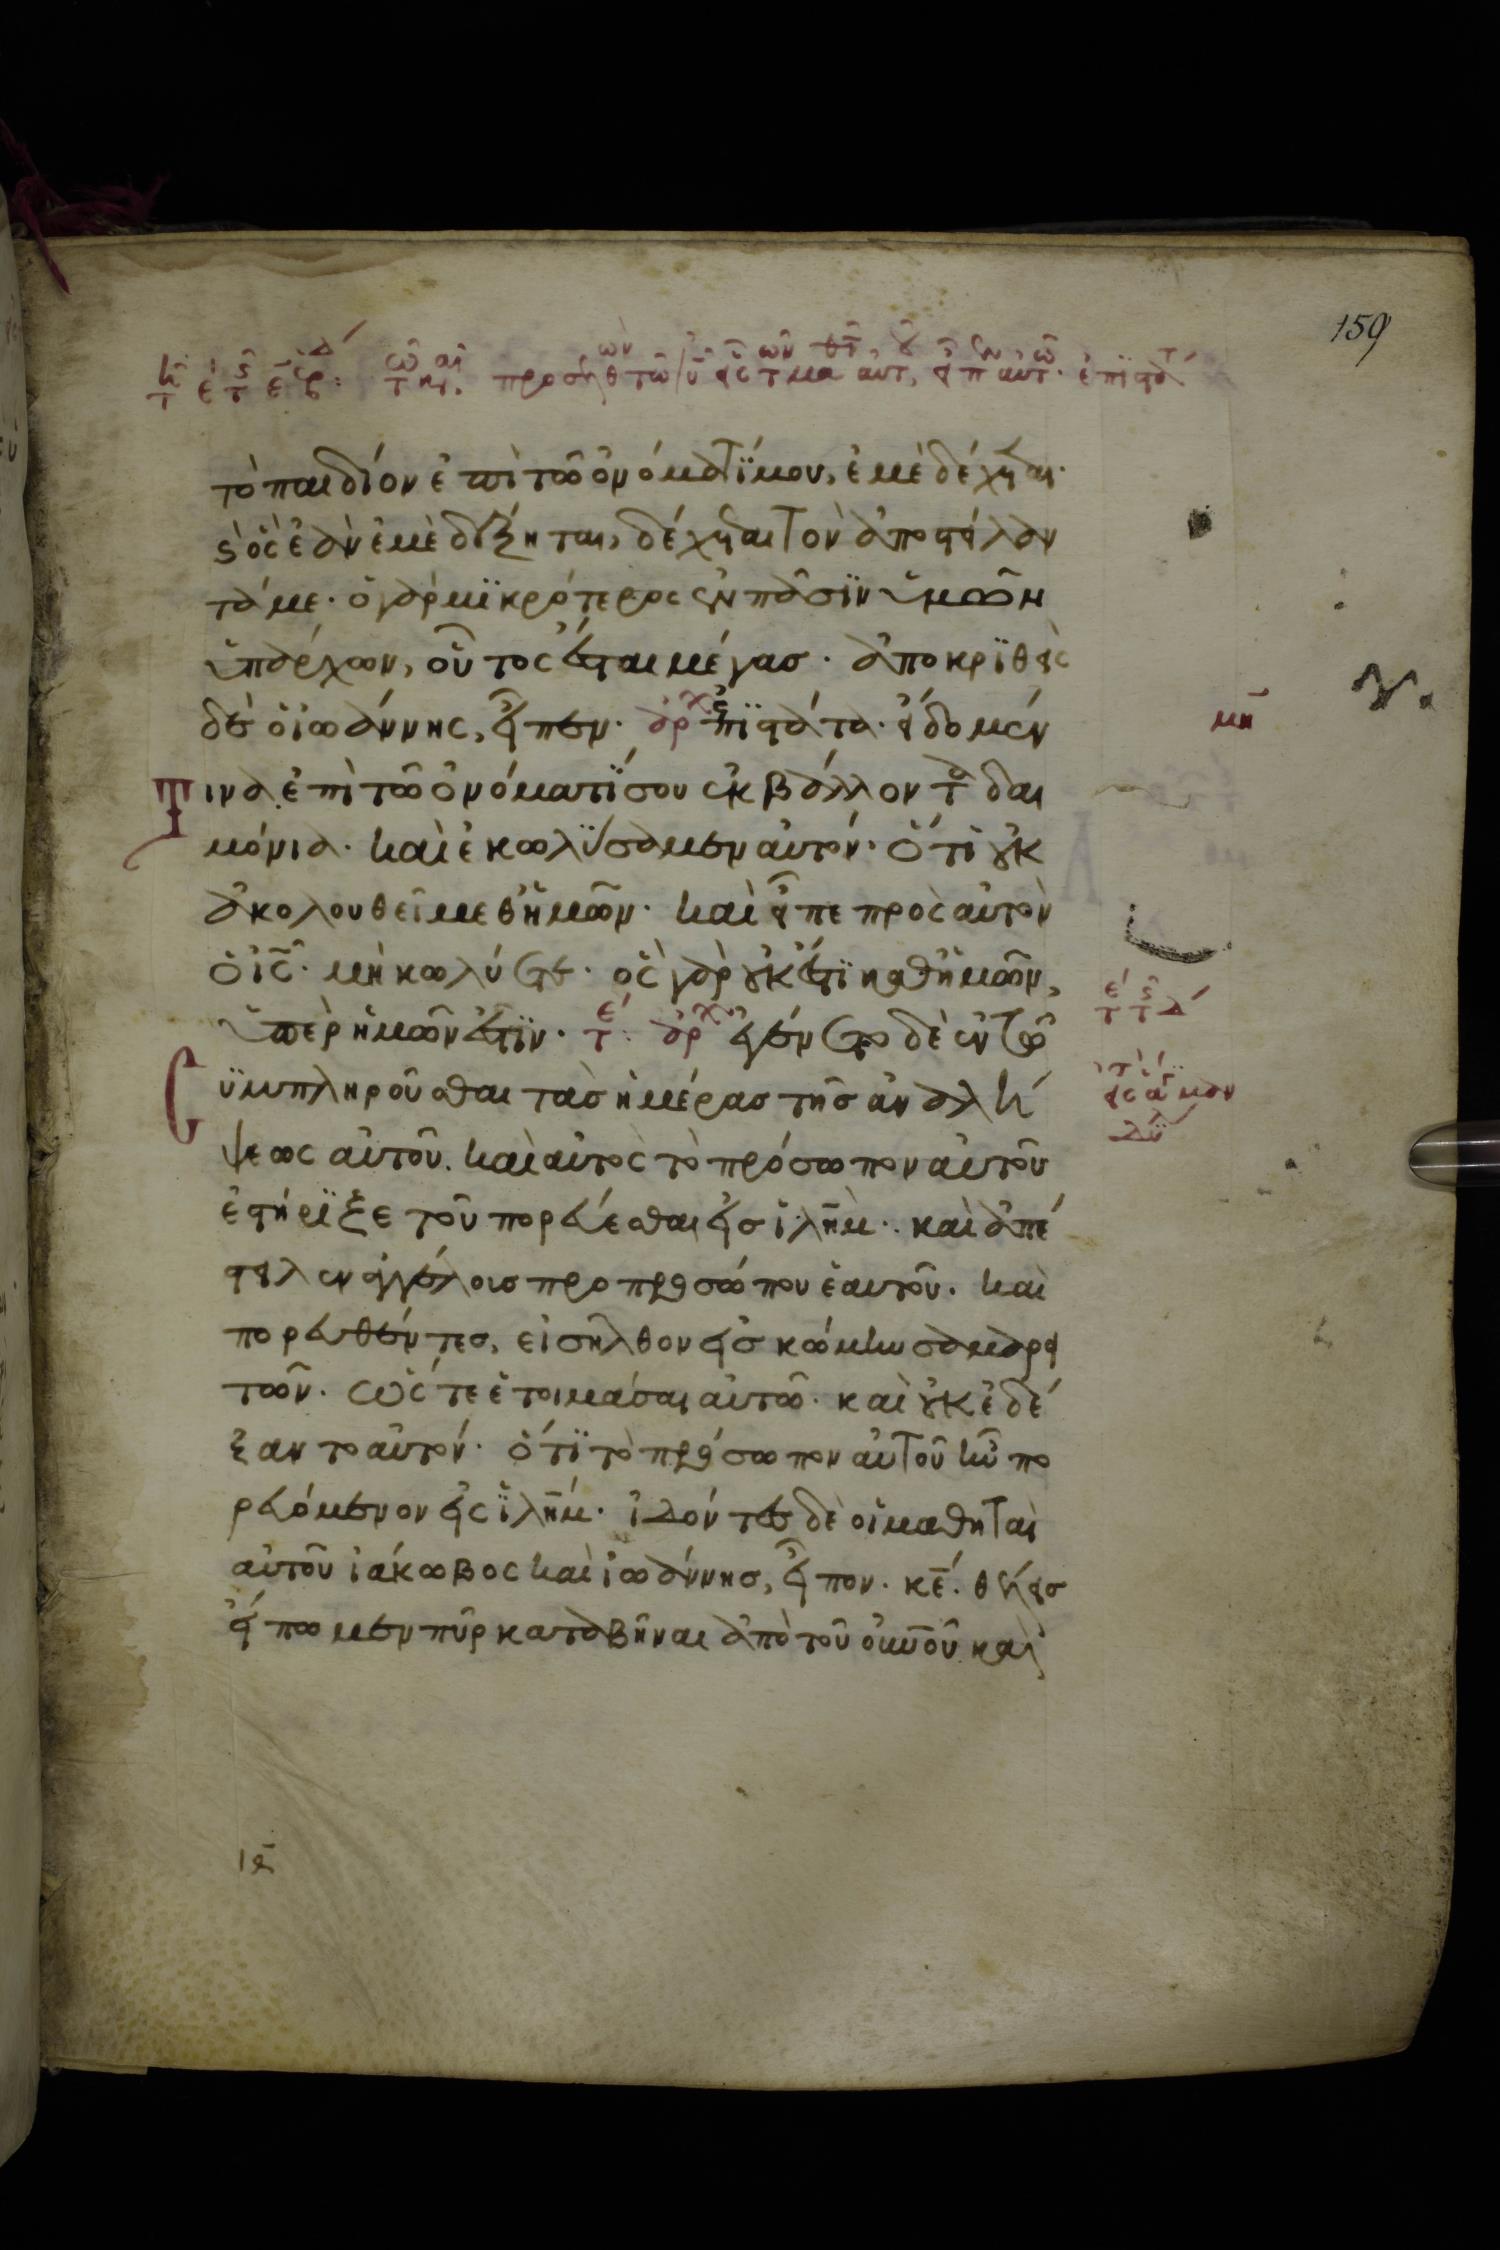 159
τὸ παιδίον ἐπὶ τῶ ὀνόματί μου, ἐμὲ δέχεται·
ϛ ὃς ἐὰν ἐμὲ δέξηται, δέχεται τὸν ἀποστείλαν
τά με· ὁ γὰρ μϊκρότερος ἐν πᾶσϊν ὑμῶν
ὑπάρχων, οὗτος ἔσται μέγας· ἀποκρϊθεὶς
δὲ ὁ ἰωάννης, εἶπεν· ἀρχ ἐπϊστάτα· εἴδομέν
τινα ἐπὶ τῶ ὀνόματί σου ἐκβάλλοντα δαι
μόνια· καὶ ἐκωλύσαμεν αὐτόν· ὅτι οὐκ
ἀκολουθεῖ μεθ ἡμῶν· καὶ εἶπε πρὸς αὐτὸν
ὁ ις· μὴ κωλύετε· ὃς γὰρ οὐκ ἔστϊ καθ ἡμῶν,
ὑπὲρ ἡμῶν ἐστϊν· ἀρχ ἐγένετο δὲ ἐν τῶ
συμπληροῦσθαι τὰς ἡμέρας τῆς ἀναλή
ψεως αὐτοῦ. καὶ αὐτὸς τὸ πρόσωπον αὐτοῦ
ἐστήρϊξε τοῦ πορεύεσθαι εἰς ϊλημ· καὶ ἀπέ
στειλεν ἀγγέλους προ προσώπου ἑαυτοῦ. καὶ
πορευθέντες, εἰσῆλθον εἰς κώμην σαμαρει
τῶν. ὥστε ἑτοιμάσαι αὐτῶ· καὶ οὐκ ἐδέ
ξαντο αὐτόν· ὅτϊ τὸ πρόσωπον αὐτοῦ ἦν πο
ρευόμενον εἰς ϊλημ· ἰδόντες δὲ οἱ μαθηταὶ
αὐτοῦ ἰάκωβος καὶ ἰωάννης, εἶπον· κε· θέλεις
εἴπωμεν πῦρ καταβῆναι ἀπὸ τοῦ οὐνοῦ καὶ